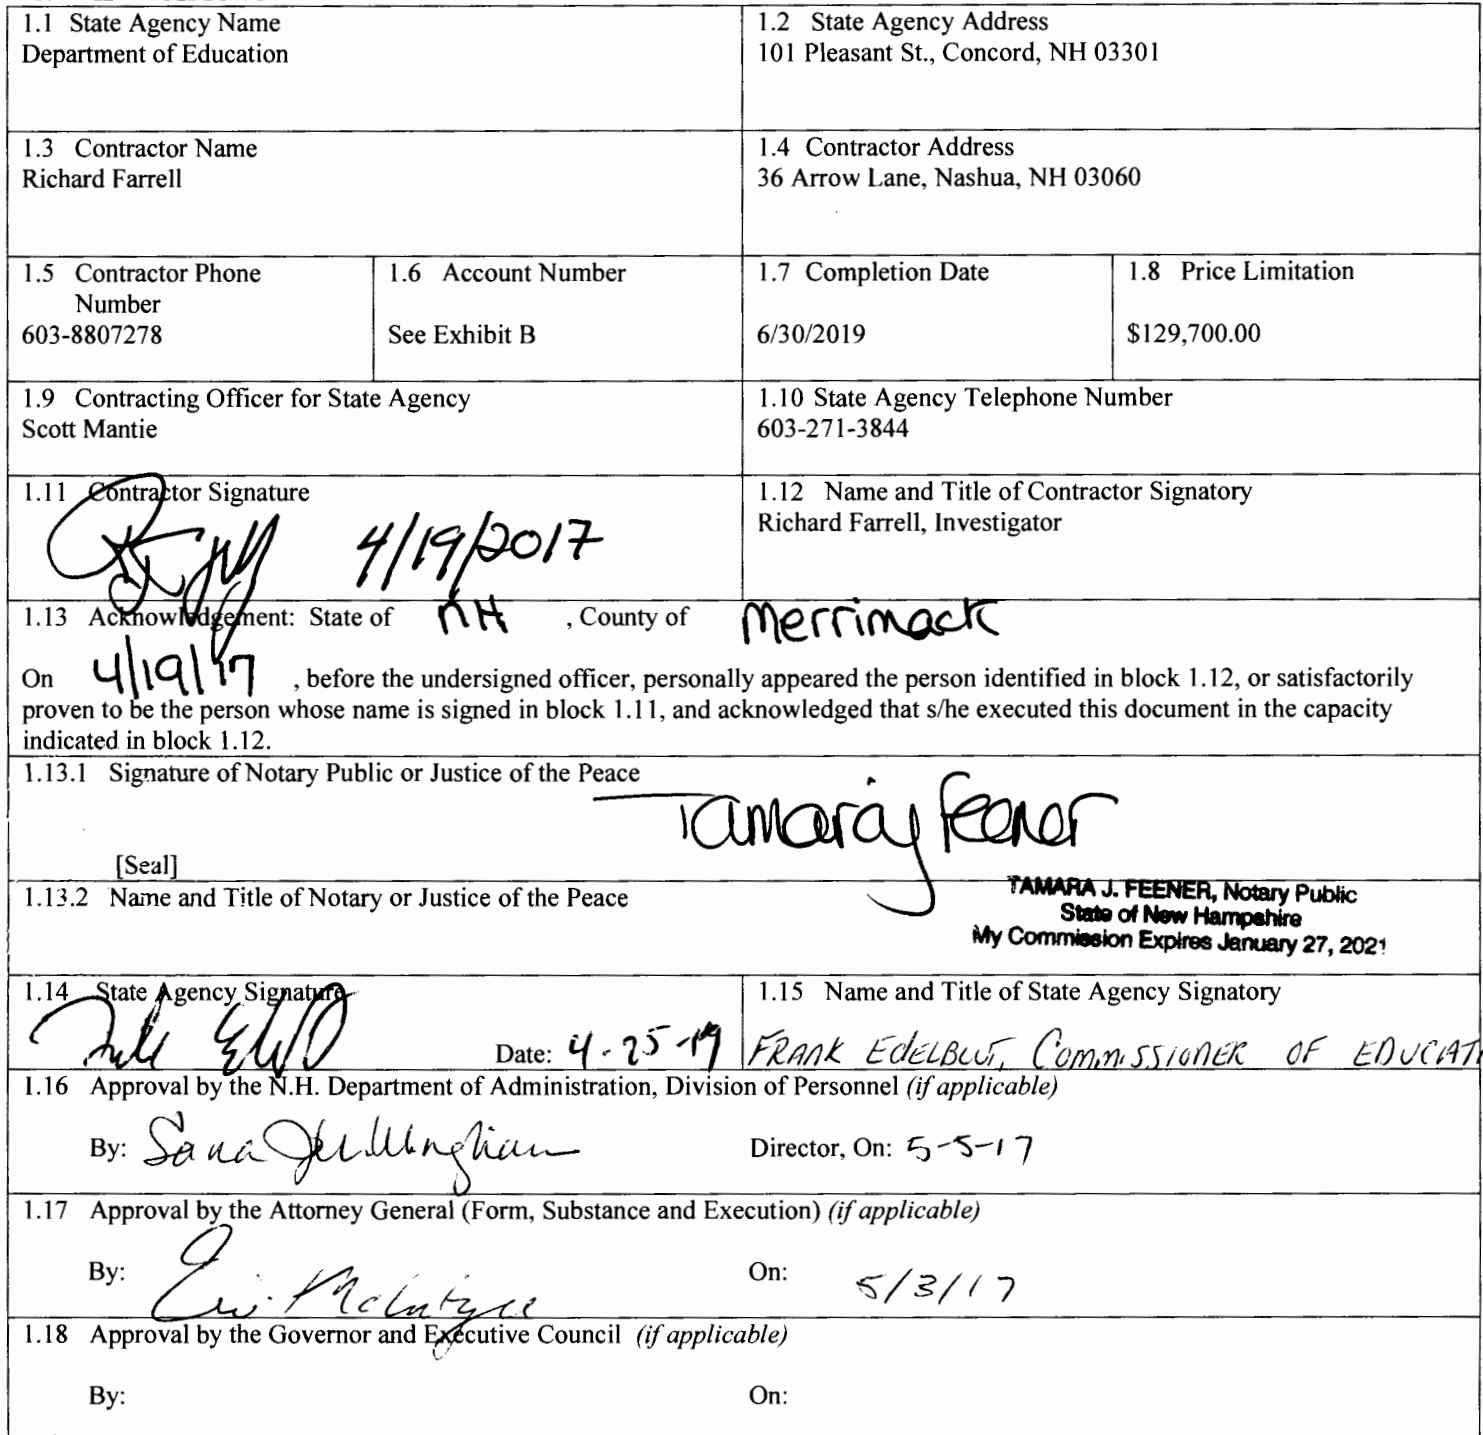 1.1 State Agency Name
Department of Education
1.2 State Agency Address
101 Pleasant St., Concord, NH 03301
1.3 Contractor Name
Richard Farrell
1.4 Contractor Address
36 Arrow Lane, Nashua, NH 03060
1.5 Contractor Phone
Number
603-8807278
1.6 Account Number
See Exhibit B
1.7 Completion Date
6/30/2019
1.8 Price Limitation
$129,700.00
1.9 Contracting Officer for State Agency
Scott Mantie
1.10 State Agency Telephone Number
603-271-3844
1.11 Contractor Signature
4/19/2017
1.12 Name and Title of Contractor Signatory
Richard Farrell, Investigator
1.13 Acknowledgement: State of NH , County of Merrimack
On 4/19/17 , before the undersigned officer, personally appeared the person identified in block 1.12, or satisfactorily
proven to be the person whose name is signed in block 1.11, and acknowledged that s/he executed this document in the capacity
indicated in block 1.12.
1.13.1 Signature of Notary Public or Justice of the Peace
Tamara J Feener
[Seal]
1.13.2 Name and Title of Notary or Justice of the Peace
TAMARA J. FEENER, Notary Public
State of New Hampshire
My Commission Expires January 27, 2021
1.14 State Agency Signature
Date: 4-25-17
1.15 Name and Title of State Agency Signatory
FRANK EDELBLUT, COMMISSIONER OF EDUCATI
1.16 Approval by the N.H. Department of Administration, Division of Personnel (if applicable)
By: Director, On: 5-5-17
1.17 Approval by the Attorney General (Form, Substance and Execution) (if applicable)
By: McIntyre On: 5/3/17
1.18 Approval by the Governor and Executive Council (if applicable)
By: On: